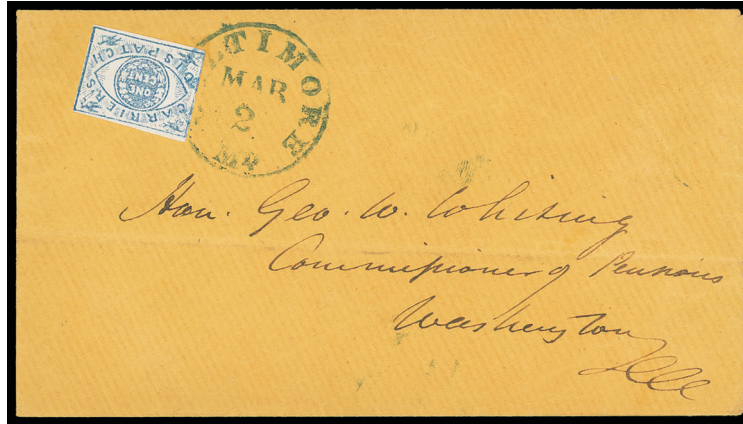 CARRIERS DISPATCH
ONE CENT
BALTIMORE
MAR
2
Md
Hon. Geo. W. Whiting
Commissioner of Pensions
Washington